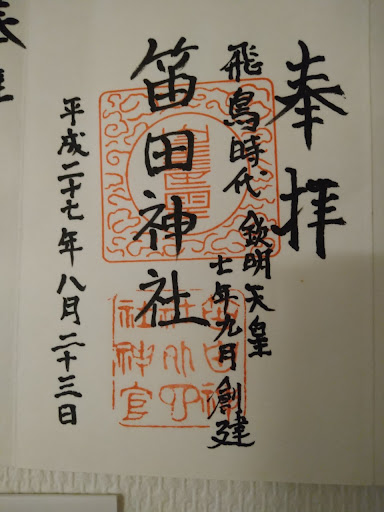 奉拝
飛鳥時代 欽明天皇
七年九月創建
笛田神社
平成二十七年八月二十三日
笛田神
社外四
社神官